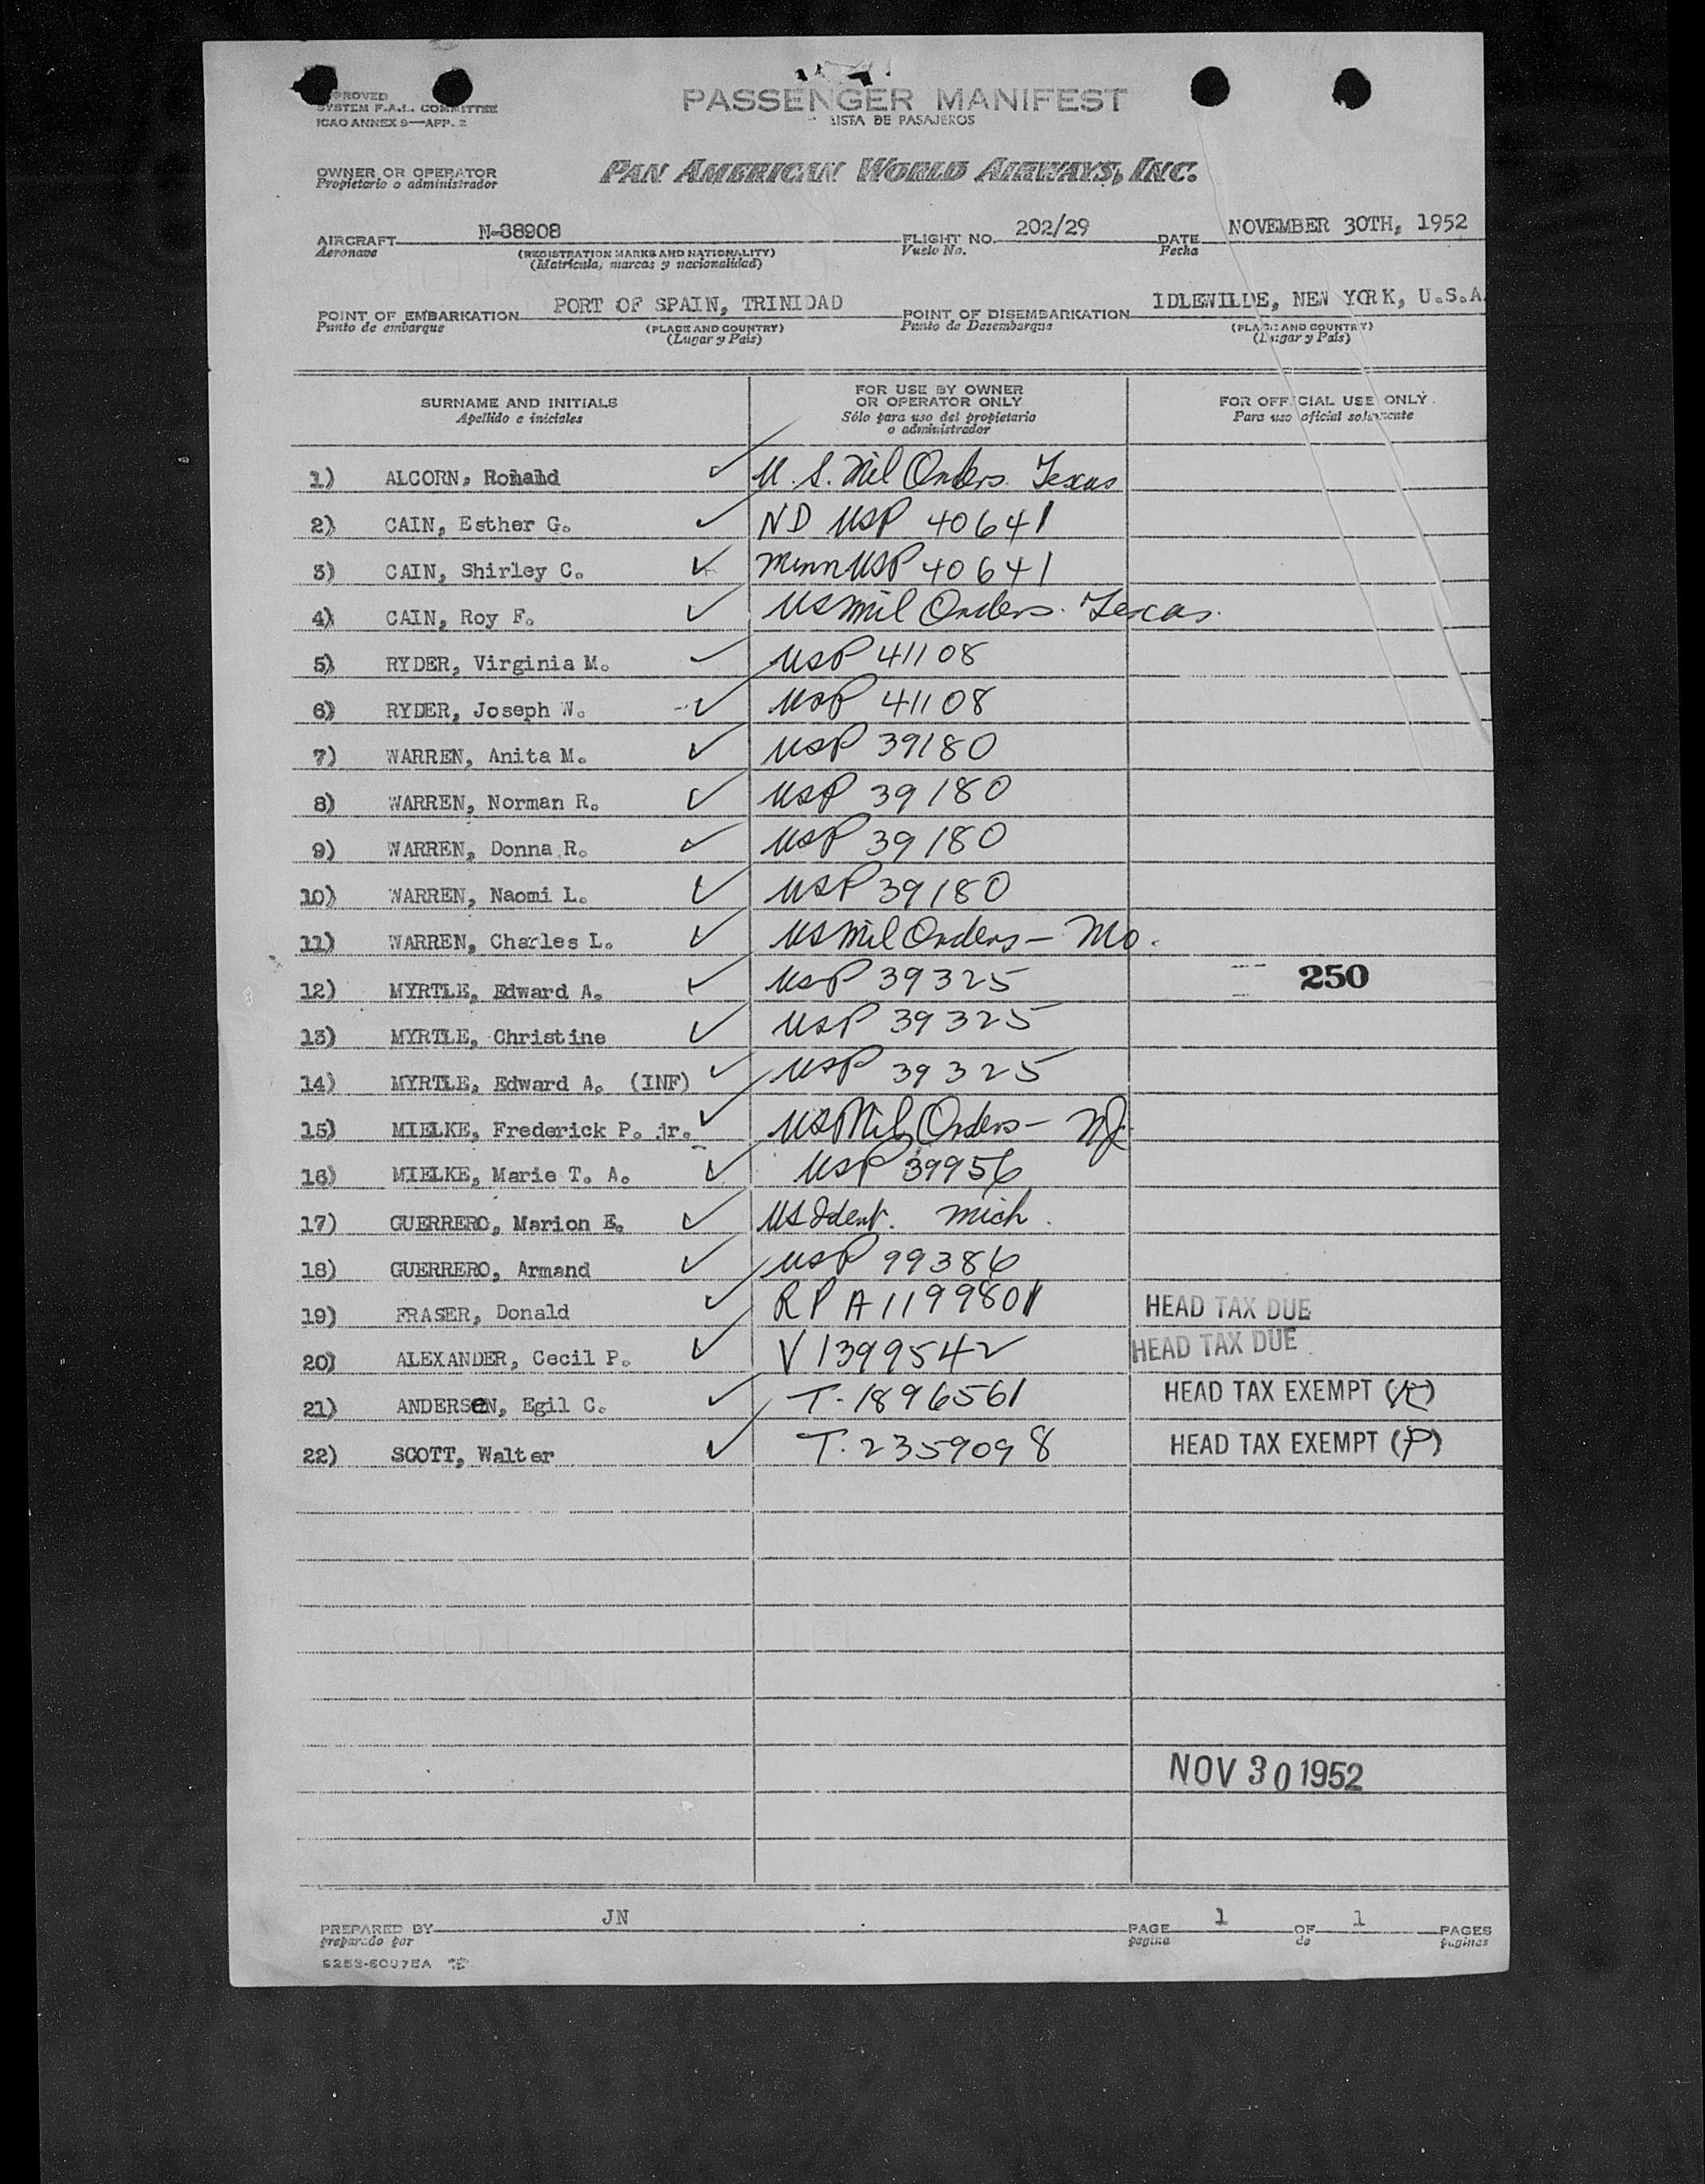 PROVED
SYSTEM F.A.L. COMMITTEE
ICAO ANNEX 9—APP. 2
PASSENGER MANIFEST
LISTA DE PASAJEROS
OWNER OR OPERATOR
Propietario o administrador
PAN AMERICAN WORLD AIRWAYS, INC.
AIRCRAFT N-88908 FLIGHT NO. 202/29 DATE NOVEMBER 30TH, 1952
Aeronave (REGISTRATION MARKS AND NATIONALITY) Vuelo No. Fecha
(Matricula, marcas y nacionalidad)
POINT OF EMBARKATION PORT OF SPAIN, TRINIDAD POINT OF DISEMBARKATION IDLEWILDE, NEW YORK, U.S.A.
Punto de embarque (PLACE AND COUNTRY) Punto de Desembarque (PLACE AND COUNTRY)
(Lugar y País) (Lugar y País)
SURNAME AND INITIALS FOR USE BY OWNER OR OPERATOR ONLY FOR OFFICIAL USE ONLY
Apellido e iniciales Sólo para uso del propietario o administrador Para uso oficial solamente
1) ALCORN, Ronald ✓ U.S. Mil Orders Texas
2) CAIN, Esther G. ✓ ND USP 40641
3) CAIN, Shirley C. ✓ Minn USP 40641
4) CAIN, Roy F. ✓ US Mil Orders. Texas.
5) RYDER, Virginia M. ✓ USP 41108
6) RYDER, Joseph W. ✓ USP 41108
7) WARREN, Anita M. ✓ USP 39180
8) WARREN, Norman R. ✓ USP 39180
9) WARREN, Donna R. ✓ USP 39180
10) WARREN, Naomi L. ✓ USP 39180
11) WARREN, Charles L. ✓ US Mil Orders — Mo.
12) MYRTLE, Edward A. ✓ USP 39325 250
13) MYRTLE, Christine ✓ USP 39325
14) MYRTLE, Edward A. (INF) ✓ USP 39325
15) MIELKE, Frederick P. jr. ✓ US Mil Orders — NJ.
16) MIELKE, Marie T. A. ✓ USP 39956
17) GUERRERO, Marion E. ✓ US Ident. Mich.
18) GUERRERO, Armand ✓ USP 99386
19) FRASER, Donald ✓ RP A1199801 HEAD TAX DUE
20) ALEXANDER, Cecil P. ✓ V1399542 HEAD TAX DUE
21) ANDERSeN, Egil C. ✓ T-1896561 HEAD TAX EXEMPT
22) SCOTT, Walter ✓ T.2359098 HEAD TAX EXEMPT (P)
NOV 30 1952
PREPARED BY JN PAGE 1 OF 1 PAGES
preparado por pagina de paginas